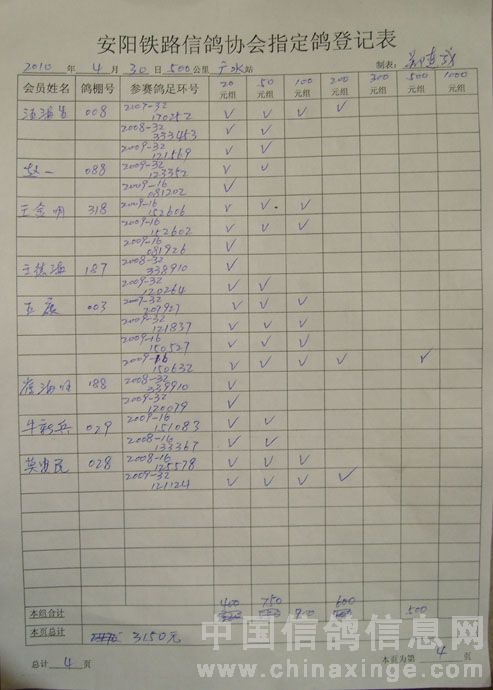 安阳铁路信鸽协会指定鸽登记表
2010 年 4 月 30 日 500 公里 广水 站 制表:
会员姓名 鸽棚号 参赛鸽足环号 20元组 50元组 100元组 200元组 300元组 500元组 1000元组
008 2007-32 170252 √ √ √ √
2008-32 333453 √ √
2009-32 121569 √ √
赵一 088 2009-32 123352 √ √
2009-16 081202 √
王金明 318 2009-16 152606 √ √ √
2009-16 152602 √ √ √
2009-16 081926 √
187 2008-32 338910 √
2009-32 120264 √ √
王 003 2009-32 207927 √ √ √
2009-32 121837 √ √ √
2009-16 150527 √ √ √
2009-16 150632 √ √ √ √ √
188 2008-32 339910 √
2009-32 120079 √
牛新兵 029 2009-16 151083 √ √
2008-16 133367 √ √
莫 民 028 2008-16 125578 √ √ √
2009-32 121124 √ √ √ √
本组合计 400 750 900 600 500
本页总计 3150元
总计 4 页 本页为第 4 页
中国信鸽信息网
www.chinaxinge.com